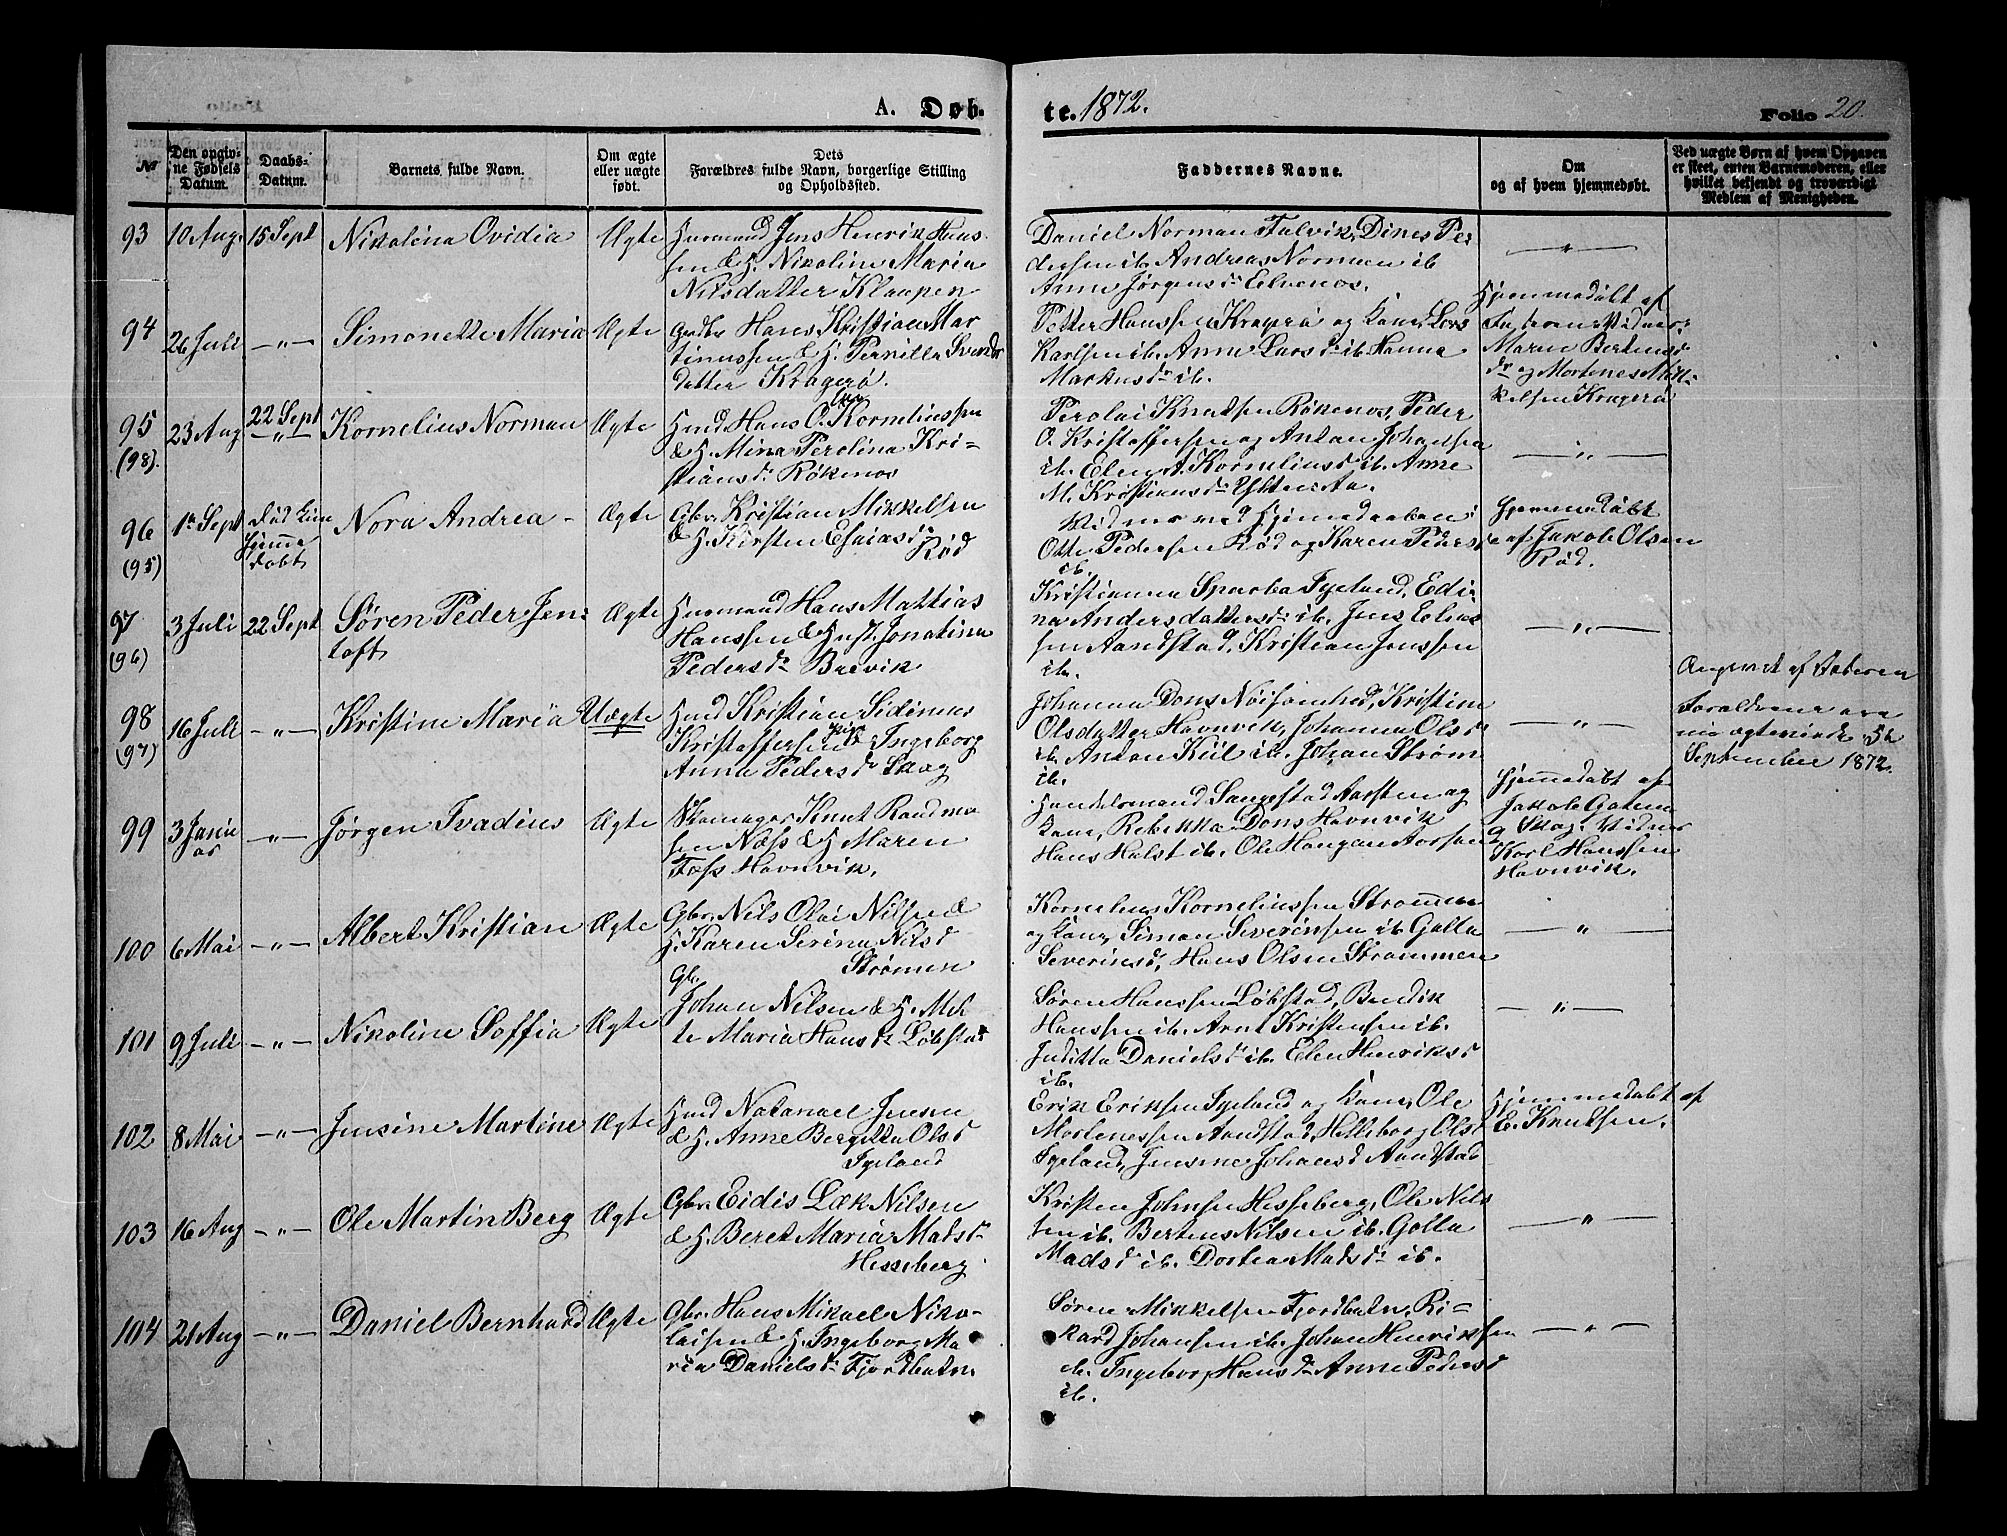 A. Døb-
te. 1872.
Folio 20.
№
Den opgiv-
ne Fødsels
Datum.
Daabs-
Datum.
Barnets fulde Navn.
Om ægte
eller uægte
født.
Dets
Forældres fulde Navn, borgerlige Stilling
og Opholdssted.
Faddernes Navne.
Om
og af hvem hjemmedøbt.
Ved uægte Børn af hvem Opgaven
er skeet, enten Barnemoderen, eller
hvilket bekjendt og troværdigt
Medlem af Menigheden.
93 10 Aug 15 Sept Nikolina Ovidia Ægte
Huusmand Jens Henrik Hans-
sen & H. Nikoline Maria
Nilsdatter Klaapen
Daniel Norman Fulvik, Dines Pe-
dersen ib. Andreas Norman ib
Anne Jørgensd Elvenos.
— " —
94 26 Juli — " — Simonette Maria Ægte
Hans Kristian Mar
tinussen & H. Pernilla Svends
datter Kragerø.
Petter Hanssen Kragerø og Kone, Lars
Karlsen ib. Anne Larsdr ib. Hanna
Markusdr ib.
Hjemmedøbt af
Faderen. Vidner:
Maren Bertens
dr og Mortenes Mik-
kelsen Kragerø
95 (98). 23 Aug 22 Sept — " — Kornelius Norman Ægte
Hmd Hans O. Kornelinssen
& H. Mina Perolina Kri-
stiansd: Røkenos
Perolai Knutsen Røkenos, Peder
O. Kristoffersen og Anton Johansen
ib. Elen A. Korneliusd ib. Anne
M. Kristiansdr
— " —
96 (95) 1ste Sept død kun hjemme døbt Nora Andrea - Ægte
Gbr. Kristian Mikkelsen
& H. Kirsten Esaiasdr
Rød
Vidner ved Hjemmedaaben:
Otte Pedersen Rød og Karen Peders
ib.
Hjemmedøbt
af Jakob Olsen
Rød.
97 (96) 3 Juli 22 Sept Søren Peder Jen-
toft Ægte
Huusmand Hans Mattias
Hanssen & Hust. Jonatina
Pedersdr Brevik
Kristianna Sparbo Fyeland, Edi-
na Andersdatter ib. Jens Elias
sen Aandstad, Kristian Jenssen
ib.
— " —
98 (97) 16 Juli — " — Kristine Maria Uægte
Hmd Kristian Sidenius
Kristoffersen Ingeborg
Anna Pedersdr Skog
Johanna Dons Kristine
Olsdatter Havnvik, Johanna Olsd
ib. Anton Kiil ib. Johan Strøm
ib.
— " —
Angivet af Faderen
Forældrene ere
nu ægteviede 5te
September 1872.
99 3 Janu
ar — " — Jørgen Ivadius Ægte
Skomager Knut Rasmus
sen Næss & H. Maren
Foss Havnvik.
Handelsmand Sangestad Aarsten og
Kone, Rebekka Dons Havnvik
Hans Holst ib. Ole Haugan Aarsen
Hjemmedøbt af
Jakob
Skog. Vidner
Karl Hanssen
Havnvik.
100 6 Mai — " — Albert Kristian Ægte
Gbr. Nils Olai Nilsen &
H. Karen Serina Nilsd
Strømen
Kornelius Kornelinssen Strømmen
og Kone, Simon Severinsen ib Golla
Severinsd, Hans Olsen Strømmen
— " —
101 9 Juli — " — Nikoline Soffia Ægte
Gbr.
Johan Nilsen & H. Met
te Maria Hansdr Løbstad
Søren Hanssen Løbstad, Bendik
Hanssen ib. Arnt Kristensen ib.
Juditta Danielsd ib. Elen Henriksd
ib.
— " —
102 8 Mai — " — Jensine Martine Ægte
Hmd Natanael Jensen
& H. Anne Bergitta Olsd
Fyeland
Erik Eriksen Fyeland og Kone, Ole
Mortenessen Aandstad, Helleborg Olsd
Fyeland, Jensine Johansd Aandstad
Hjemmedøbt af
E. Knutsen.
103 16 Aug — " — Ole Martin Berg Ægte
Gbr. Eidis Læk Nilsen
& H. Beret Maria Madsd-
Hesseberg
Kristen Johnsen Hesseberg, Ole Nils
sen ib. Bertens Nilsen ib. Golla
Madsd ib. Dortea Madsdr ib.
— " —
104 21 Aug — " — Daniel Bernhard Ægte
Gbr. Hans Mikael Niko-
laisen & H. Ingeborg Ma
ria Danielsdr Fjordbotn
Søren Mikkelsen Fjordbotn, Ri-
kard Johansen ib. Johan Henriksen
ib. Ingeborg Hansdr Anne Pedersd
ib.
— " —